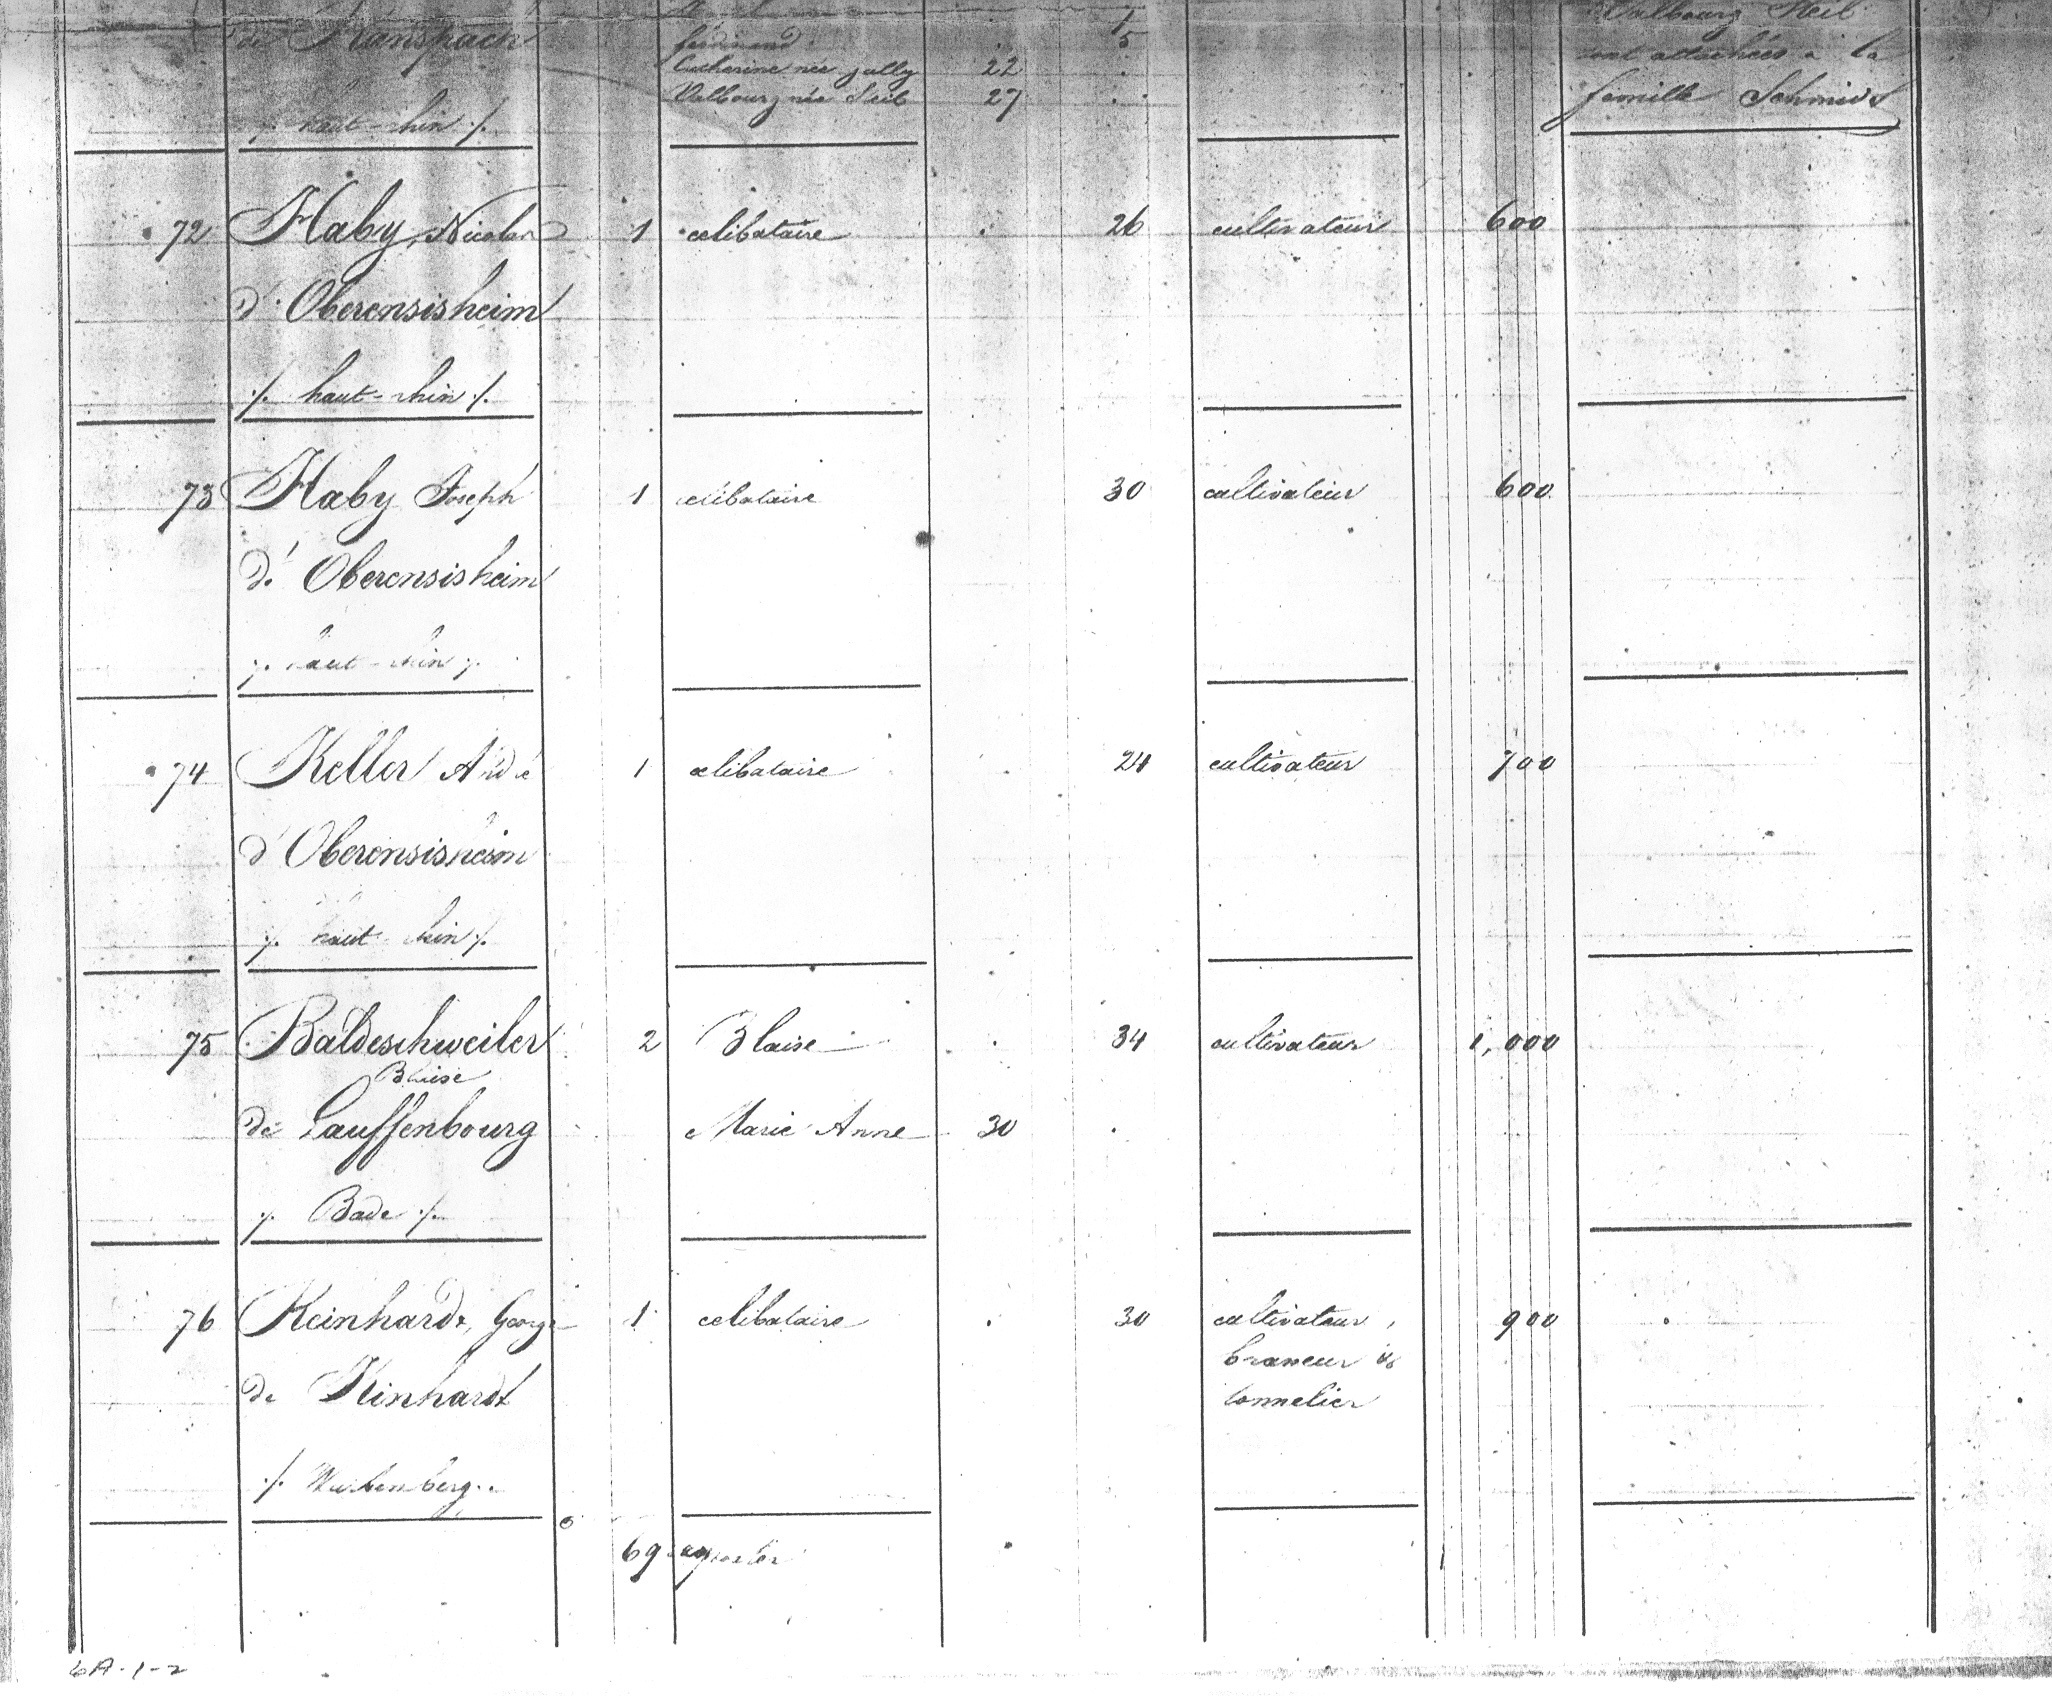 Valbourg Steib
de Ranspach
ferdinand 5
Catherine née Jally 22 sont attachées à la
Valbourg née Steib 27 famille Schmidt
./. haut-rhin ./.
72 Haby, Nicolas 1 celibataire 26 cultivateur 600
d'Oberensisheim
./. haut-rhin ./.
73 Haby Joseph 1 célibataire 30 cultivateur 600
d'Oberensisheim
./. haut-rhin ./.
74 Keller André 1 celibataire 24 cultivateur 700
d'Oberensisheim
./. haut-rhin ./.
75 Baldeschweiler 2 Blaise 34 cultivateur 1,000
Blaise
de Lauffenbourg Marie Anne 30
./. Bade ./.
76 Reinhardt, George 1 celibataire 30 cultivateur,
900
brasseur &
de Rinhardt tonnelier
./. Wurtemberg ./.
69 reporter
6A-1-2